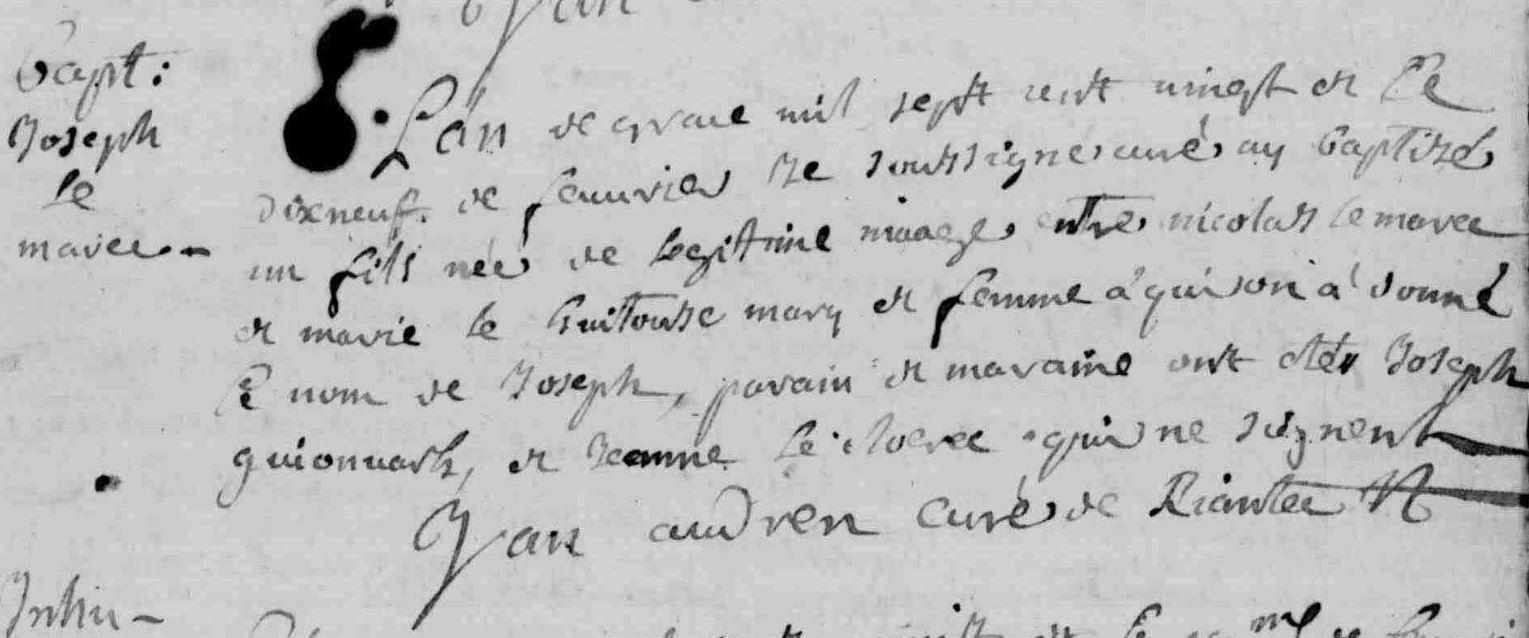 Bapt:
Joseph
le
marec -
L'an de grace mil sept cent vingt et le
dixneuf. de feuvrier Je soussigné curé ay baptizé
un fils neé de legitime mariage entre nicolas le marec
et marie le guitousse mary et femme a qui on a donné
le nom de Joseph, parain et maraine ont etés Joseph
guionvarh, et Jeanne le cloerec qui ne signent
Yan audren curé de Riantec
Inhu -